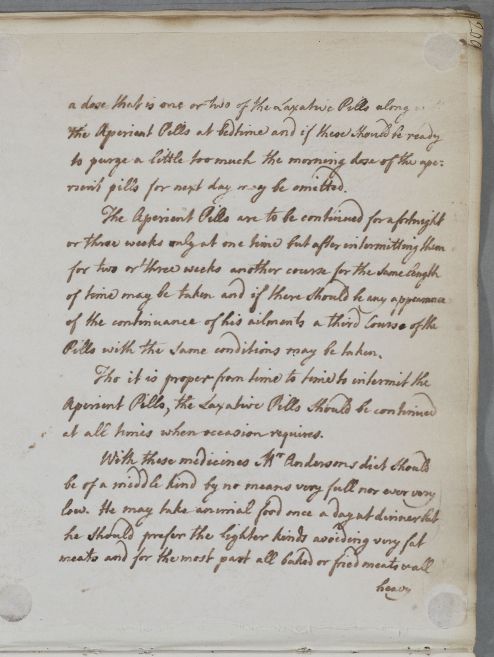 209
a dose that is one or two of the Laxative Pills along with
the Aperient Pills at bedtime and if these should be ready
to purge a little too much the morning dose of the ape:
rient pills for next day may be omitted.
The Aperient Pills are to be continued for a fortnight
or three weeks only at one time but after intermitting them
for two or three weeks another course for the same length
of time may be taken and if there should be any appearance
of the continuance of his ailments a third Course of the
Pills with the same conditions may be taken.
Tho it is proper from time to time to intermit the
Aperient Pills, the Laxative Pills should be continued
at all times when occasion requires.
With these medicines Mr Andersons diet should
be of a middle kind by no means very full nor ever very
low. He may take animal food once a day at dinner but
he should prefer the lighter kinds avoiding very fat
meats and for the most part all baked or fried meats & all
heavy